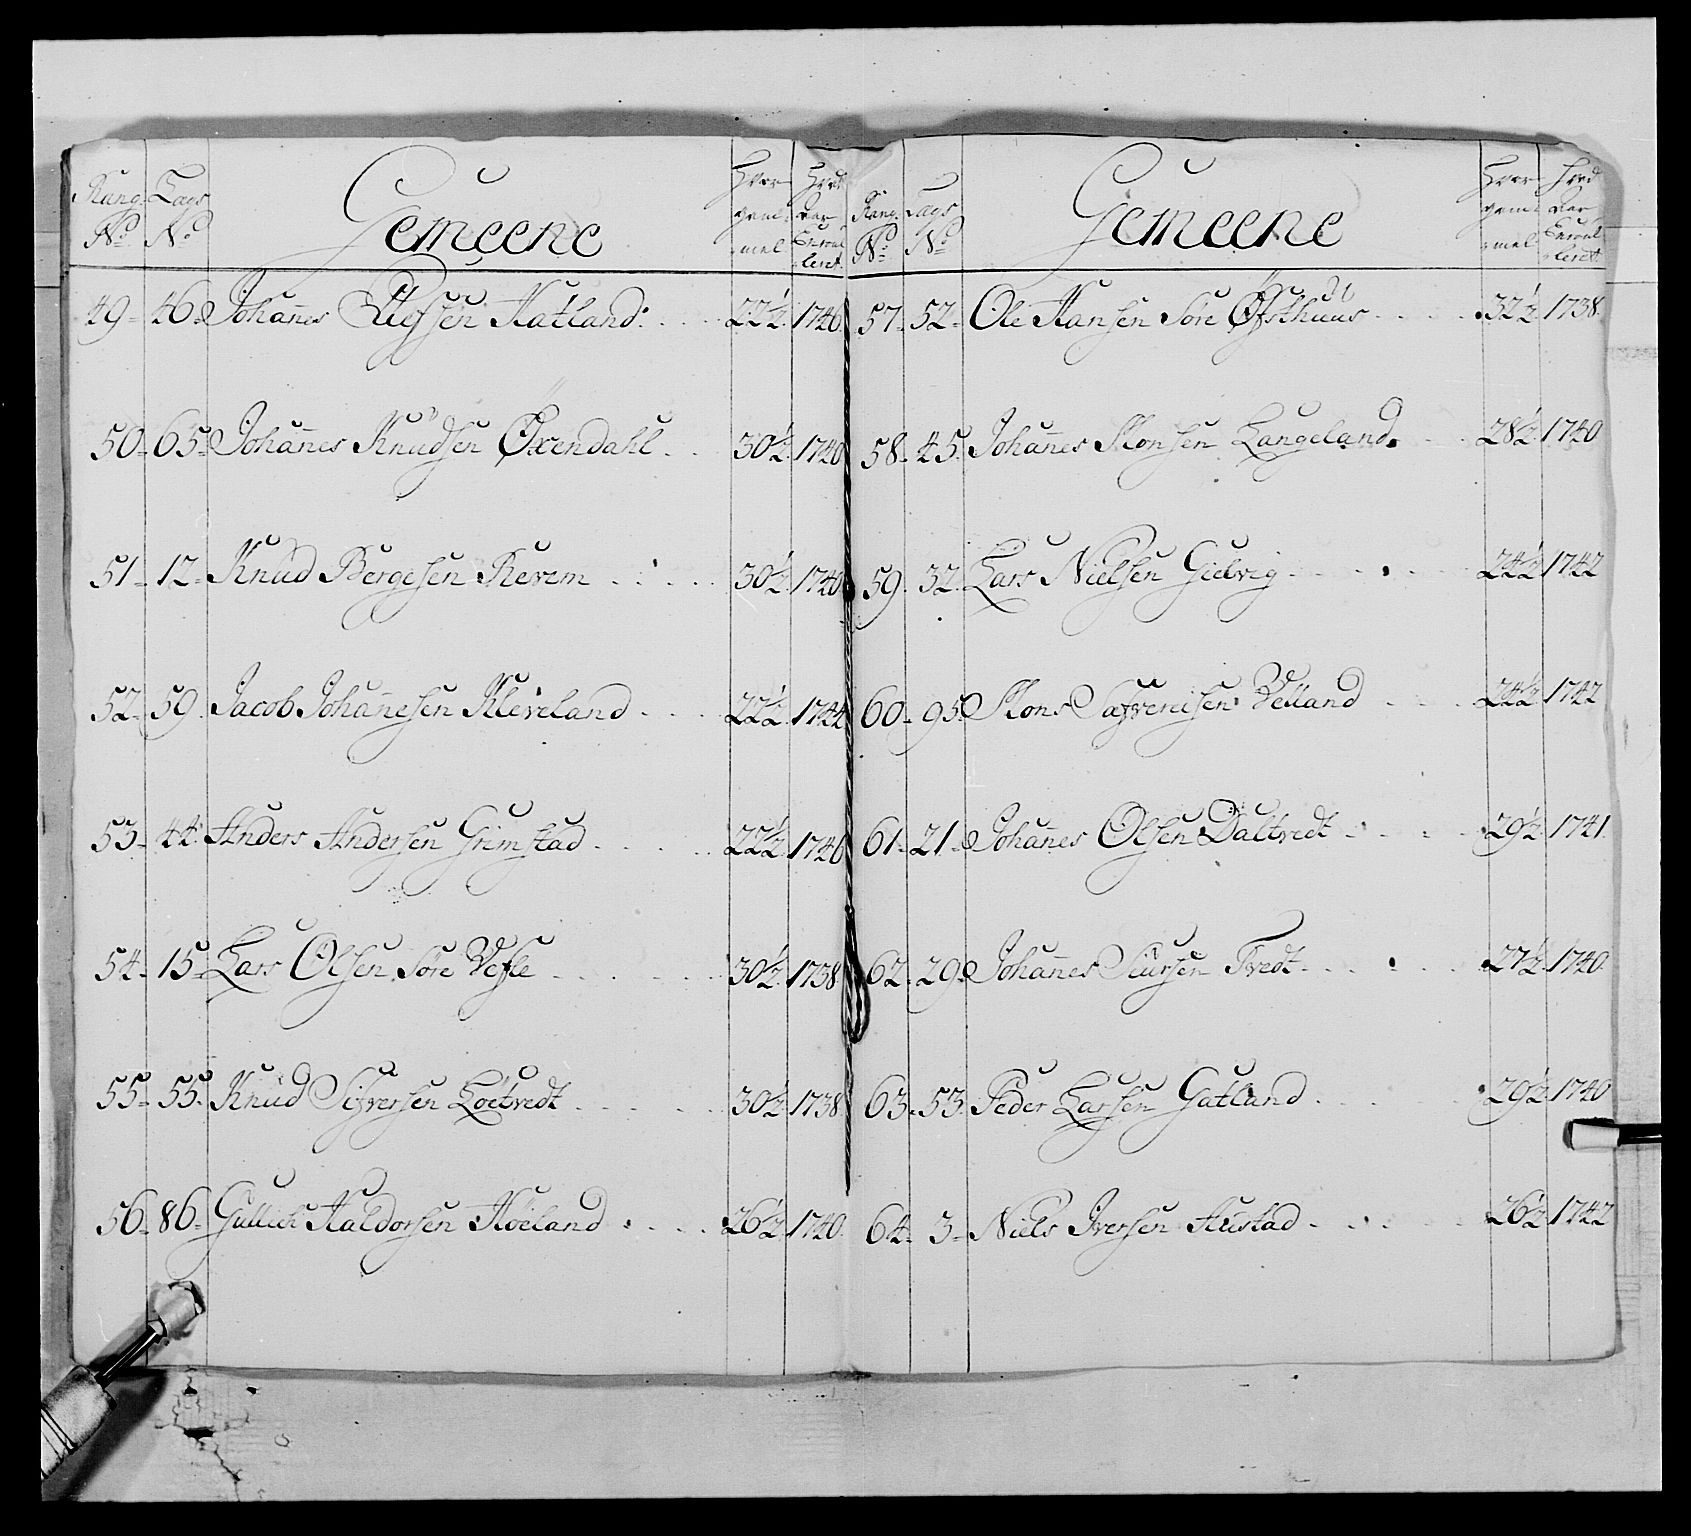 Rang No. Lags No. Gemeene Hvor gam-mel Hvad Aar Enroul-leret
49 - 46 - Johannes Hatland 22½ 1740
50 - 65 - Johannes Knudsen Øxendahl 30½ 1740
51 - 12 - Knud Bergesen Revem 30½ 1740
52 - 59. Jacob Johannesen Kleveland 22½ 1742
53 - 44. Anders Andersen Grimstad 22½ 1740
54 - 15 - Lars Olsen Søre Vefle 30½ 1738
55 - 55. Knud Sifversen Løetvedt 30½ 1738
56 - 86 - Gullich Haldorsen Høeland 26½ 1740.
Rang No. Lags No. Gemeene Hvor gam-mel Hvad Aar Enroul-leret
57 - 52 - Ole Hansen Søre Øfsthuus 32½ 1738.
58 - 45. Johannes Monsen Langeland 28½ 1740
59. 32. Lars Nielsen Gielvig 24½ 1742
60 - 95. Mons Velland 24½ 1742
61 - 21 - Johannes Olsen Daltvedt 29½ 1741.
62 - 29. Johannes Siursen Tvedt 27½ 1740.
63. 53. Peder Larsen Gatland 29½ 1740
64 - 3 - Niels Iversen Austad 26½ 1742